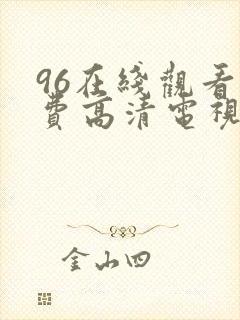 96在綫觀看
費高清電視
金山四